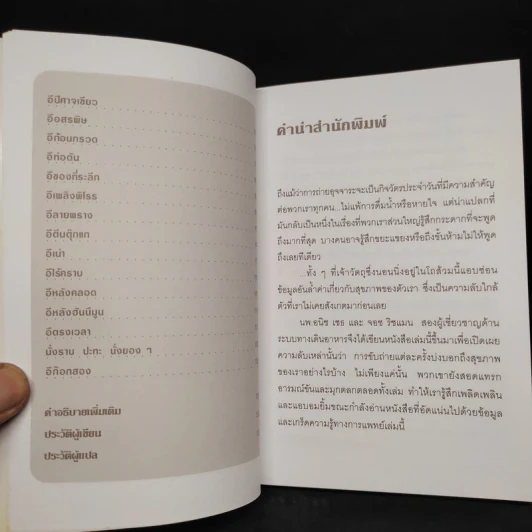 อึปีศาจเขียว
อึอสรพิษ
อึก้อนกรวด
อึท่อตัน
อึของที่ระลึก
อึเพลิงพิโรธ
อึลายพราง
อึตีนตุ๊กแก
อึเน่า
อึไร้คราบ
อึหลังคลอด
อึหลังฮันนีมูน
อึตรงเวลา
นั่งราบ ปะทะ นั่งยอง ๆ
อึก๊อกสอง
คำอธิบายเพิ่มเติม
ประวัติผู้เขียน
ประวัติผู้แปล
คำนำสำนักพิมพ์
ถึงแม้ว่าการถ่ายอุจจาระจะเป็นกิจวัตรประจำวันที่มีความสำคัญ
ต่อพวกเราทุกคน ไม่แพ้การดื่มน้ำหรือหายใจ แต่น่าแปลกที่
มันกลับเป็นหนึ่งในเรื่องที่พวกเราส่วนใหญ่รู้สึกกระดากที่จะพูด
ถึงมากที่สุด บางคนอาจรู้สึกขยะแขยงหรือถึงขั้นห้ามไม่ให้พูด
ถึงเลยทีเดียว
...ทั้ง ๆ ที่เจ้าวัตถุซึ่งนอนนิ่งอยู่ในโถส้วมนี้แอบซ่อน
ข้อมูลอันล้ำค่าเกี่ยวกับสุขภาพของตัวเรา ซึ่งเป็นความลับใกล้
ตัวที่เราไม่เคยสังเกตมาก่อนเลย
นพ.อนิช เชธ และ จอช ริชแมน สองผู้เชี่ยวชาญด้าน
ระบบทางเดินอาหารจึงได้เขียนหนังสือเล่มนี้ขึ้นมาเพื่อเปิดเผย
ความลับเหล่านั้นว่า การขับถ่ายแต่ละครั้งบ่งบอกถึงสุขภาพ
ของเราอย่างไรบ้าง ไม่เพียงแค่นั้น พวกเขายังสอดแทรก
อารมณ์ขันและมุกตลกตลอดทั้งเล่ม ทำให้เรารู้สึกเพลิดเพลิน
และแอบอมยิ้มขณะกำลังอ่านหนังสือที่อัดแน่นไปด้วยข้อมูล
และเกร็ดความรู้ทางการแพทย์เล่มนี้